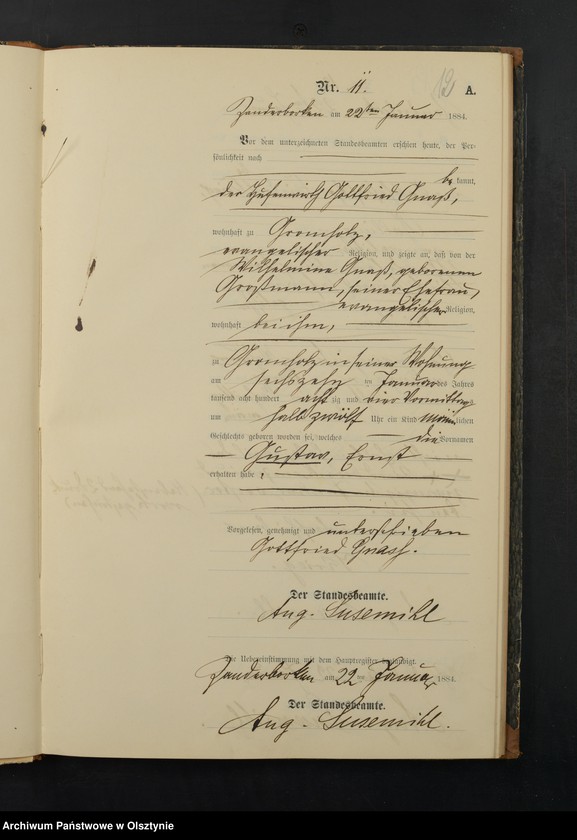 Nr. 11.
A.
Zanderborken am 22ten Januar 1884.
Vor dem unterzeichneten Standesbeamten erschien heute, der Per-
sönlichkeit nach
be kannt,
der Hufenwirth Gottfried Gnaß,
wohnhaft zu Gromholz,
evangelischer Religion, und zeigte an, daß von der
Wilhelmine Gnaß, geborenen
Großmann, seiner Ehefrau,
evangelischer Religion,
wohnhaft bei ihm,
zu Gromholz in seiner Wohnung
am sechszehn ten Januar des Jahres
tausend acht hundert acht zig und vier Vormittag
um halb zwölf Uhr ein Kind männ lichen
Geschlechts geboren worden sei, welches die Vornamen
Gustav, Ernst
erhalten habe,
Vorgelesen, genehmigt und unterschrieben
Gottfried Gnaß.
Der Standesbeamte.
Aug. Susemihl
Die Uebereinstimmung mit dem Hauptregister beglaubigt.
Zanderborken am 22 ten Januar 1884.
Der Standesbeamte.
Aug. Susemihl.
Archiwum Państwowe w Olsztynie